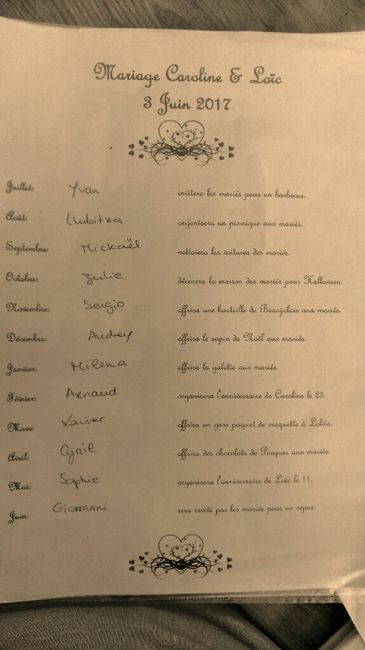 Mariage Caroline & Loïc
3 Juin 2017
Juillet: Yvan invitera les mariés pour un barbecue.
Août: Lubitza organisera un picnique aux mariés.
Septembre: Mickaël nettoiera les voitures des mariés.
Octobre: Julie décorera la maison des mariés pour Halloween.
Novembre: Sergio offrira une bouteille de Beaujolais aux mariés.
Décembre: Audrey offrira le sapin de Noël aux mariés.
Janvier: Milena offrira la galette aux mariés.
Février: Arnaud organisera l'anniversaire de Caroline le 25.
Mars: Xavier offrira un gros paquet de croquette à Lolita.
Avril: Cyril offrira des chocolats de Pacques aux mariés.
Mai: Sophie organisera l'anniversaire de Loïc le 11.
Juin: Giovanni sera invité par les mariés pour un repas.